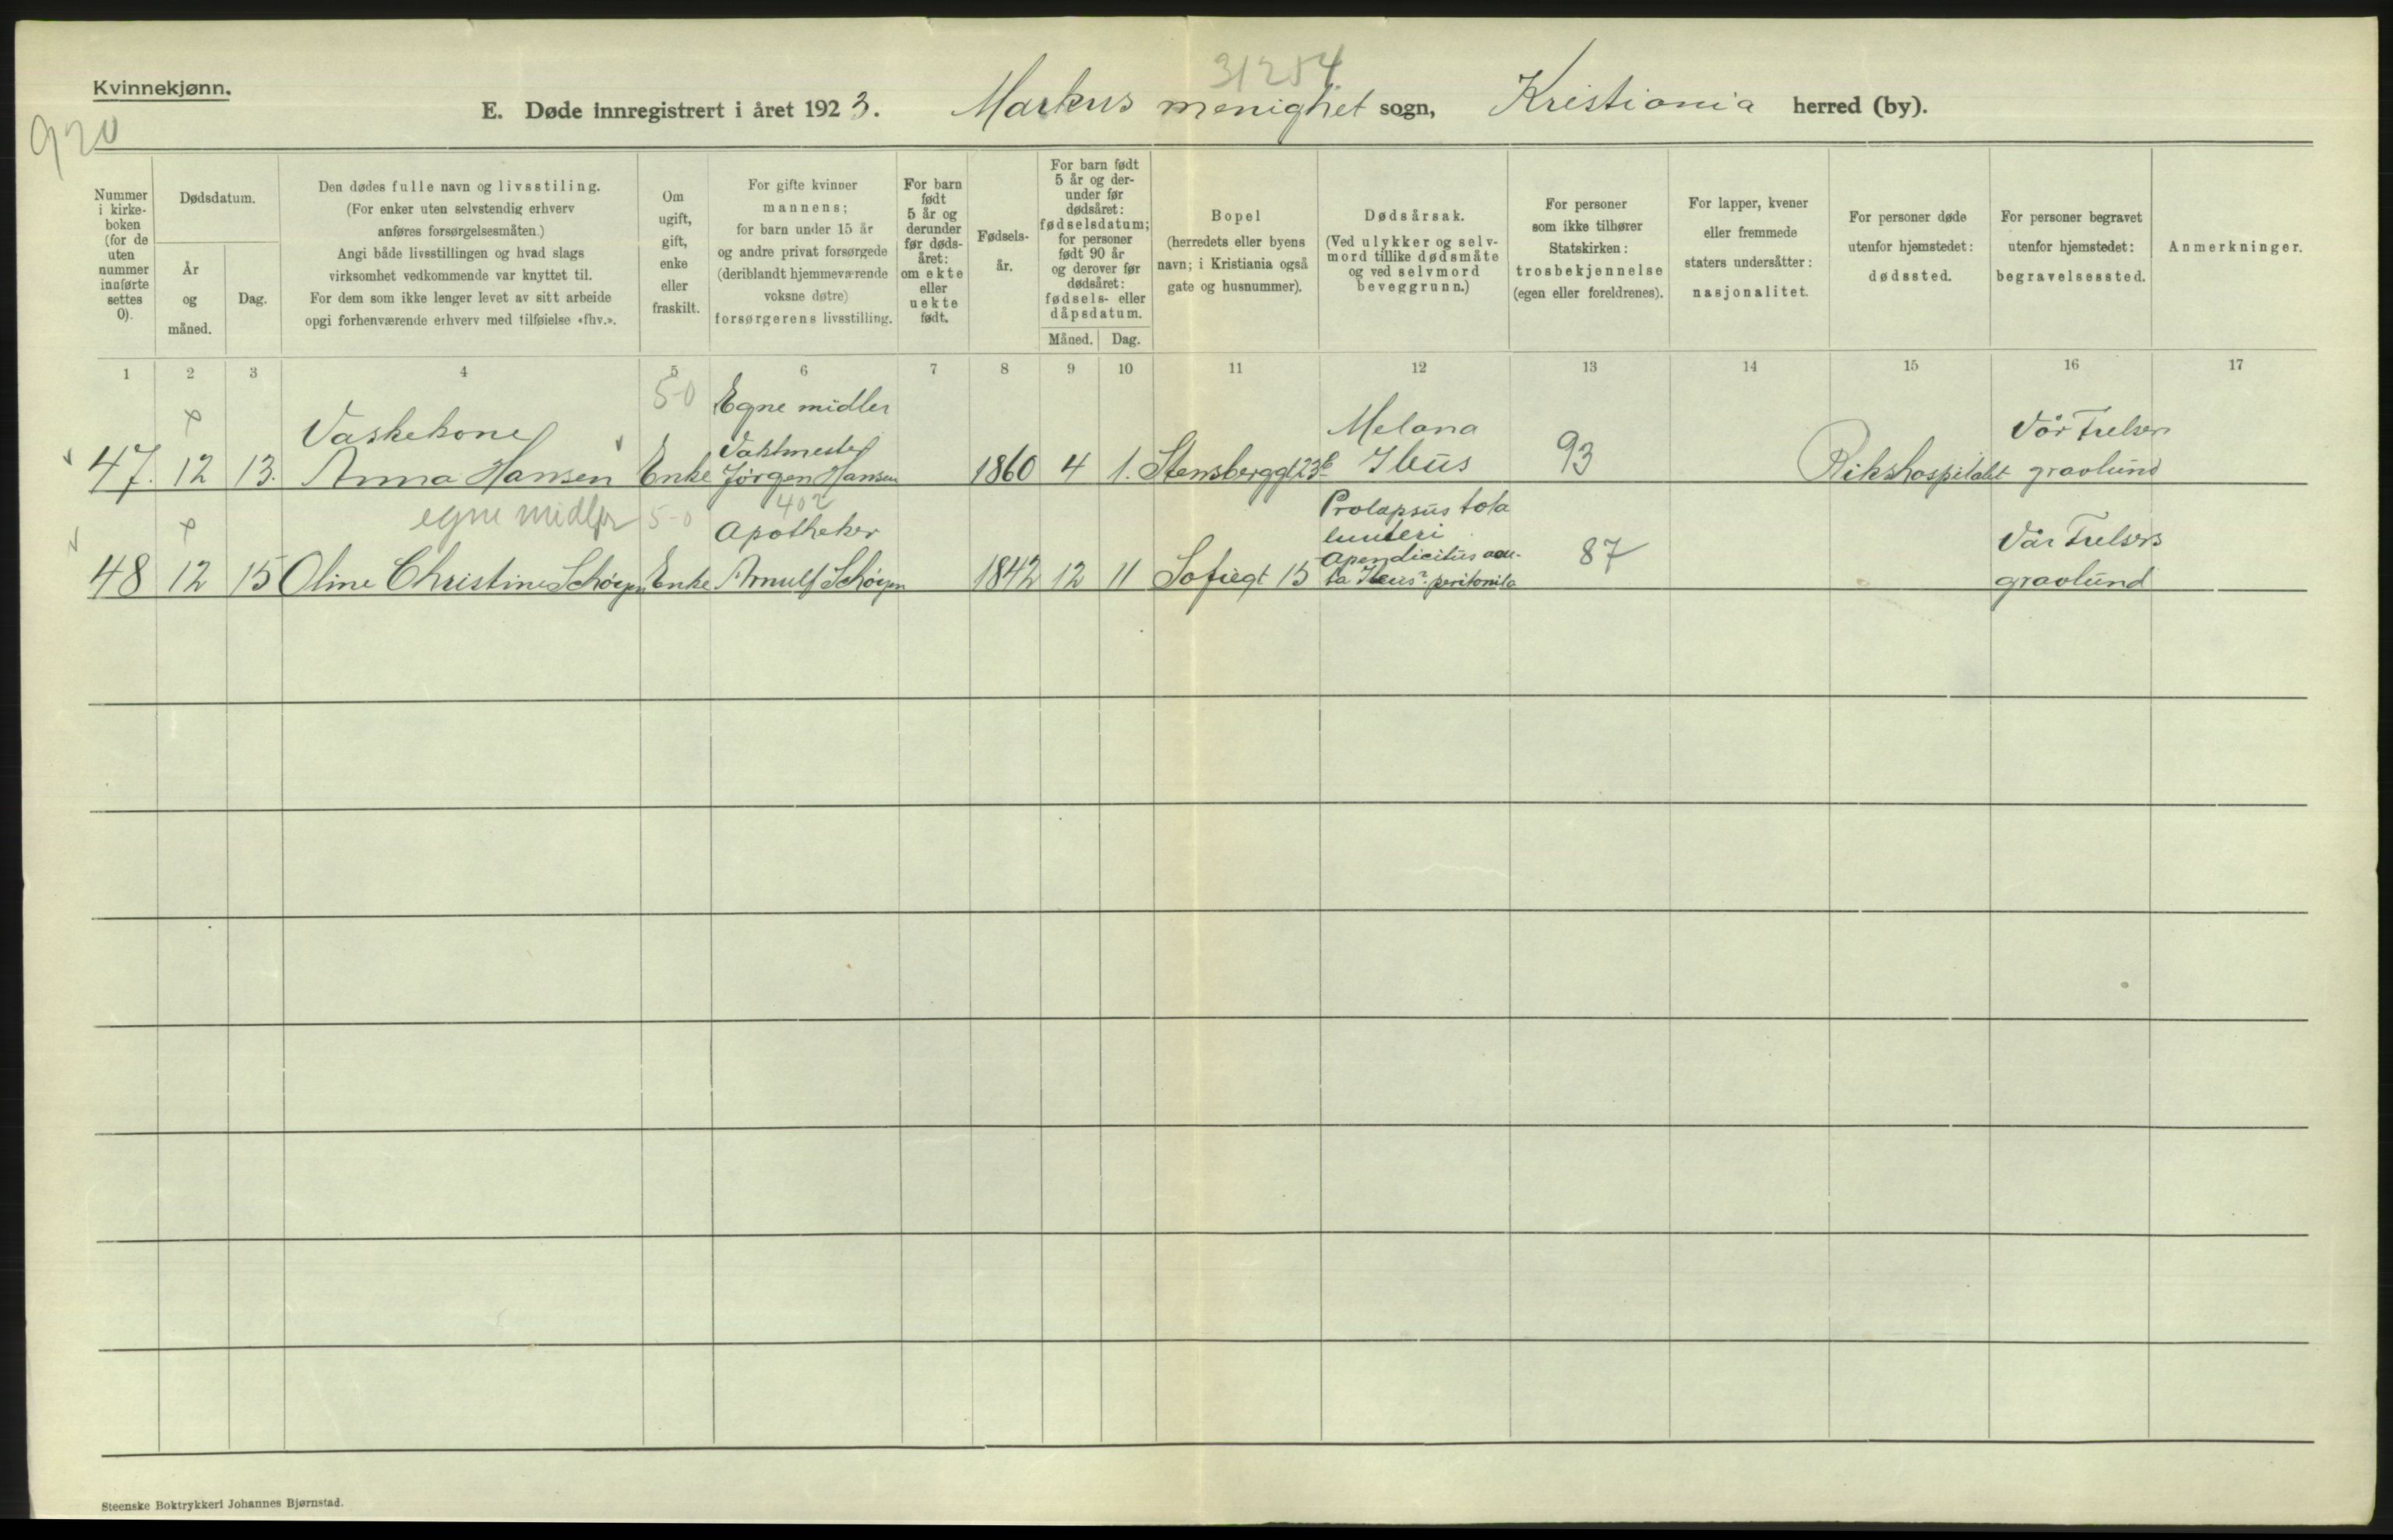 Kvinnekjønn.
31254
E. Døde innregistrert i året 1923. Markus menighet sogn, Kristiania herred (by).
920
Nummer
i kirke-
boken
(for de
uten
nummer
innførte
settes
0).
Dødsdatum.
År
og
måned.
Dag.
Den dødes fulle navn og livsstiling.
(For enker uten selvstendig erhverv
anføres forsørgelsesmåten.)
Angi både livsstillingen og hvad slags
virksomhet vedkommende var knyttet til.
For dem som ikke lenger levet av sitt arbeide
opgi forhenværende erhverv med tilføielse «fhv.».
Om
ugift,
gift,
enke
eller
fraskilt.
For gifte kvinner
mannens;
for barn under 15 år
og andre privat forsørgede
(deriblandt hjemmeværende
voksne døtre)
forsørgerens livsstilling.
For barn
født
5 år og
derunder
før døds-
året:
om ekte
eller
uekte
født.
Fødsels-
år.
For barn født
5 år og der-
under før
dødsåret:
fødselsdatum;
for personer
født 90 år
og derover før
dødsåret:
fødsels- eller
dåpsdatum.
Måned. Dag.
Bopel
(herredets eller byens
navn; i Kristiania også
gate og husnummer).
Dødsårsak.
(Ved ulykker og selv-
mord tillike dødsmåte
og ved selvmord
beveggrunn.)
For personer
som ikke tilhører
Statskirken:
trosbekjennelse
(egen eller foreldrenes).
For lapper, kvener
eller fremmede
staters undersåtter:
nasjonalitet.
For personer døde
utenfor hjemstedet:
dødssted.
For personer begravet
utenfor hjemstedet:
begravelsessted.
Anmerkninger.
1 2 3 4 5 6 7 8 9 10 11 12 13 14 15 16 17
5-0 Egne midler
Vaskekone Vaktmester Melana Vår Frelsers
47. 12 13. Anna Hansen Enke Jørgen Hansen 1860 4 1. Stensberggt 23b Ileus 93 Rikshospitalet gravlund
egne midler 5-0 402 Prolapsus tota
Apotheker Vår Frelsers
Apendicitus acu-
48 12 15 Oline Christine Schøyen Enke Arnulf Schøyen 1842 12 11 Sofiegt 15 ta Ileus? peritonita 87 gravlund
Steenske Boktrykkeri Johannes Bjørnstad.